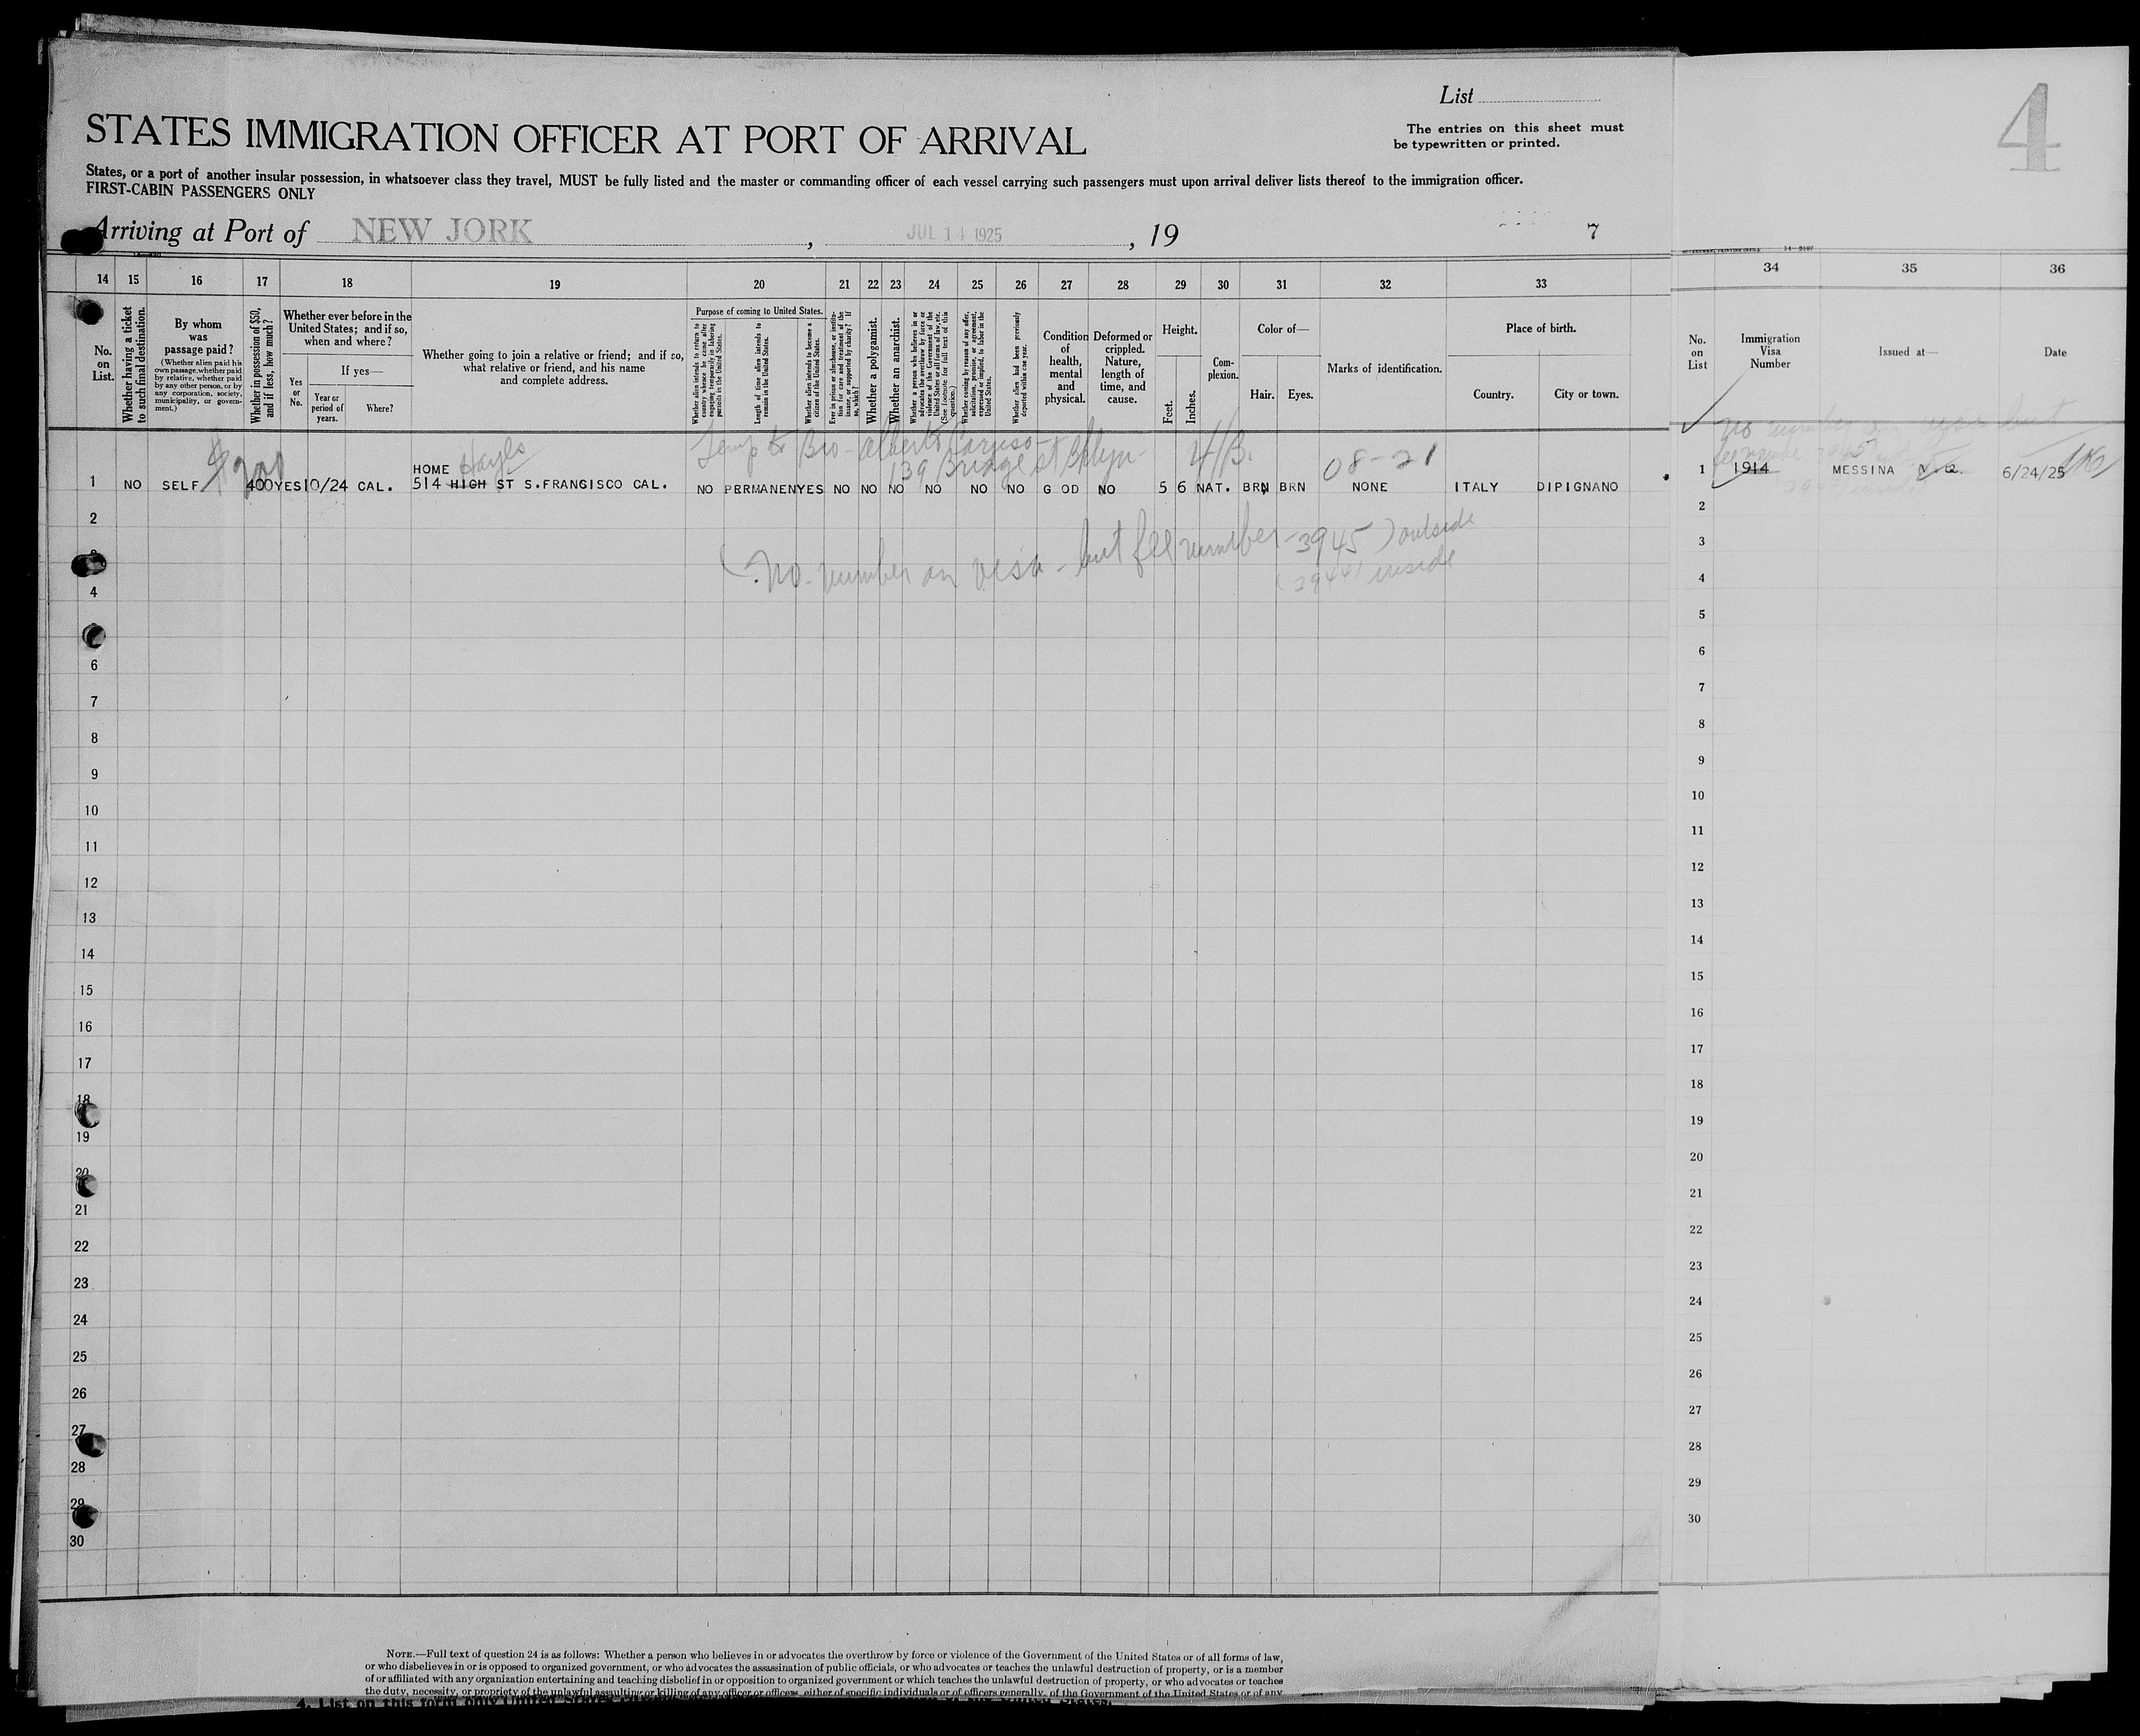 List
STATES IMMIGRATION OFFICER AT PORT OF ARRIVAL
The entries on this sheet must
be typewritten or printed.
4
States, or a port of another insular possession, in whatsoever class they travel, MUST be fully listed and the master or commanding officer of each vessel carrying such passengers must upon arrival deliver lists thereof to the immigration officer.
FIRST-CABIN PASSENGERS ONLY
Arriving at Port of NEW JORK , JUL 14 1925 , 19
7
14 15 16 17 18 19 20 21 22 23 24 25 26 27 28 29 30 31 32 33 34 35 36
No. on List.
Whether having a ticket to such final destination.
By whom was passage paid?
(Whether alien paid his own passage, whether paid by relative, whether paid by any other person, or by any corporation, society, municipality, or government.)
Whether in possession of $50, and if less, how much?
Whether ever before in the United States; and if so, when and where?
Yes or No.
If yes—
Year or period of years.
Where?
Whether going to join a relative or friend; and if so, what relative or friend, and his name and complete address.
Purpose of coming to United States.
Whether alien intends to return to country whence he came after engaging temporarily in laboring pursuits in the United States.
Length of time alien intends to remain in the United States.
Whether alien intends to become a citizen of the United States.
Ever in prison or almshouse, or institution for care and treatment of the insane, or supported by charity? If so, which?
Whether a polygamist.
Whether an anarchist.
Whether a person who believes in or advocates the overthrow by force or violence of the Government of the United States or all forms of law, etc. (See footnote for full text of this question.)
Whether coming by reason of any offer, solicitation, promise, or agreement, expressed or implied, to labor in the United States.
Whether alien had been previously deported within one year.
Condition of health, mental and physical.
Deformed or crippled. Nature, length of time, and cause.
Height.
Feet.
Inches.
Complexion.
Color of—
Hair.
Eyes.
Marks of identification.
Place of birth.
Country.
City or town.
No. on List
Immigration Visa Number
Issued at—
Date
Temp to Bro - Alberto Caruso -
139 Bridge St Bklyn
4/B.
08-21
No number on visa but
$200
HOME Hayes
1 NO SELF 400 YES 10/24 CAL. 514 HIGH ST S.FRANGISCO CAL. NO PERMANEN YES NO NO NO NO NO NO G OD NO 5 6 NAT. BRN BRN NONE ITALY DIPIGNANO
1 1914 MESSINA 6/24/25
(No number on visa - but fee number - 3945) outside
(3944) inside
2
3
4
6
7
8
9
10
11
12
13
14
15
16
17
18
19
20
21
22
23
24
25
26
27
28
29
30
2
3
4
5
6
7
8
9
10
11
12
13
14
15
16
17
18
19
20
21
22
23
24
25
26
27
28
29
30
NOTE.—Full text of question 24 is as follows: Whether a person who believes in or advocates the overthrow by force or violence of the Government of the United States or of all forms of law,
or who disbelieves in or is opposed to organized government, or who advocates the assassination of public officials, or who advocates or teaches the unlawful destruction of property, or is a member
of or affiliated with any organization entertaining and teaching disbelief in or opposition to organized government or which teaches the unlawful destruction of property, or who advocates or teaches
the duty, necessity, or propriety of the unlawful assaulting or killing of any officer or officers, either of specific individuals or of officers generally, of the Government of the United States or of any
4. List on this form only United States